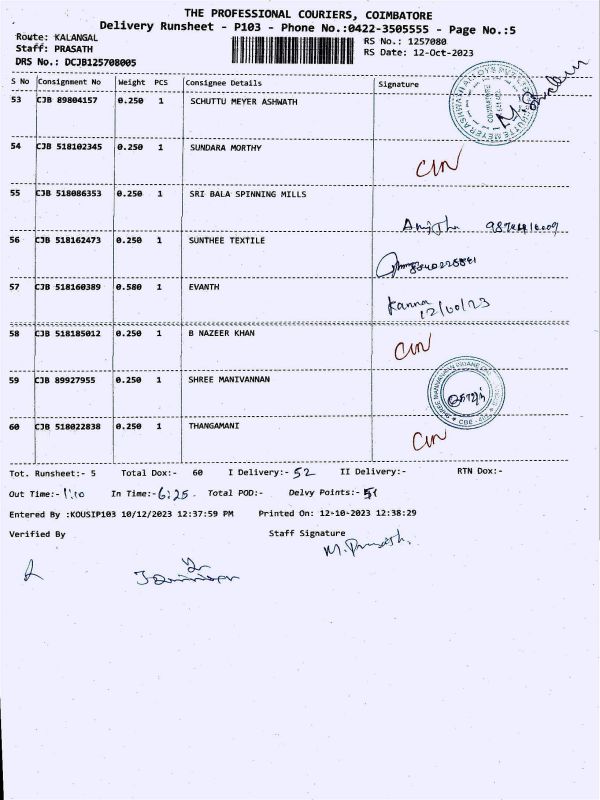 THE PROFESSIONAL COURIERS, COIMBATORE
Delivery Runsheet - P103 - Phone No.:0422-3505555 - Page No.:5
Route: KALANGAL RS No.: 1257080
Staff: PRASATH RS Date: 12-Oct-2023
DRS No.: DCJB125708005
S No Consignment No Weight PCS Consignee Details Signature
53 CJB 89804157 0.250 1 SCHUTTU MEYER ASHWATH
54 CJB 518102345 0.250 1 SUNDARA MORTHY
55 CJB 518086353 0.250 1 SRI BALA SPINNING MILLS
56 CJB 518162473 0.250 1 SUNTHEE TEXTILE
57 CJB 518160389 0.580 1 EVANTH Kanna
58 CJB 518185012 0.250 1 B NAZEER KHAN
59 CJB 89927955 0.250 1 SHREE MANIVANNAN
60 CJB 518022838 0.250 1 THANGAMANI
Tot. Runsheet:- 5 Total Dox:- 60 I Delivery:- 52 II Delivery:- RTN Dox:-
Out Time:- 1.10 In Time:- 6:25. Total POD:- Delvy Points:- 51
Entered By :KOUSIP103 10/12/2023 12:37:59 PM Printed On: 12-10-2023 12:38:29
Verified By Staff Signature
M. Prasath